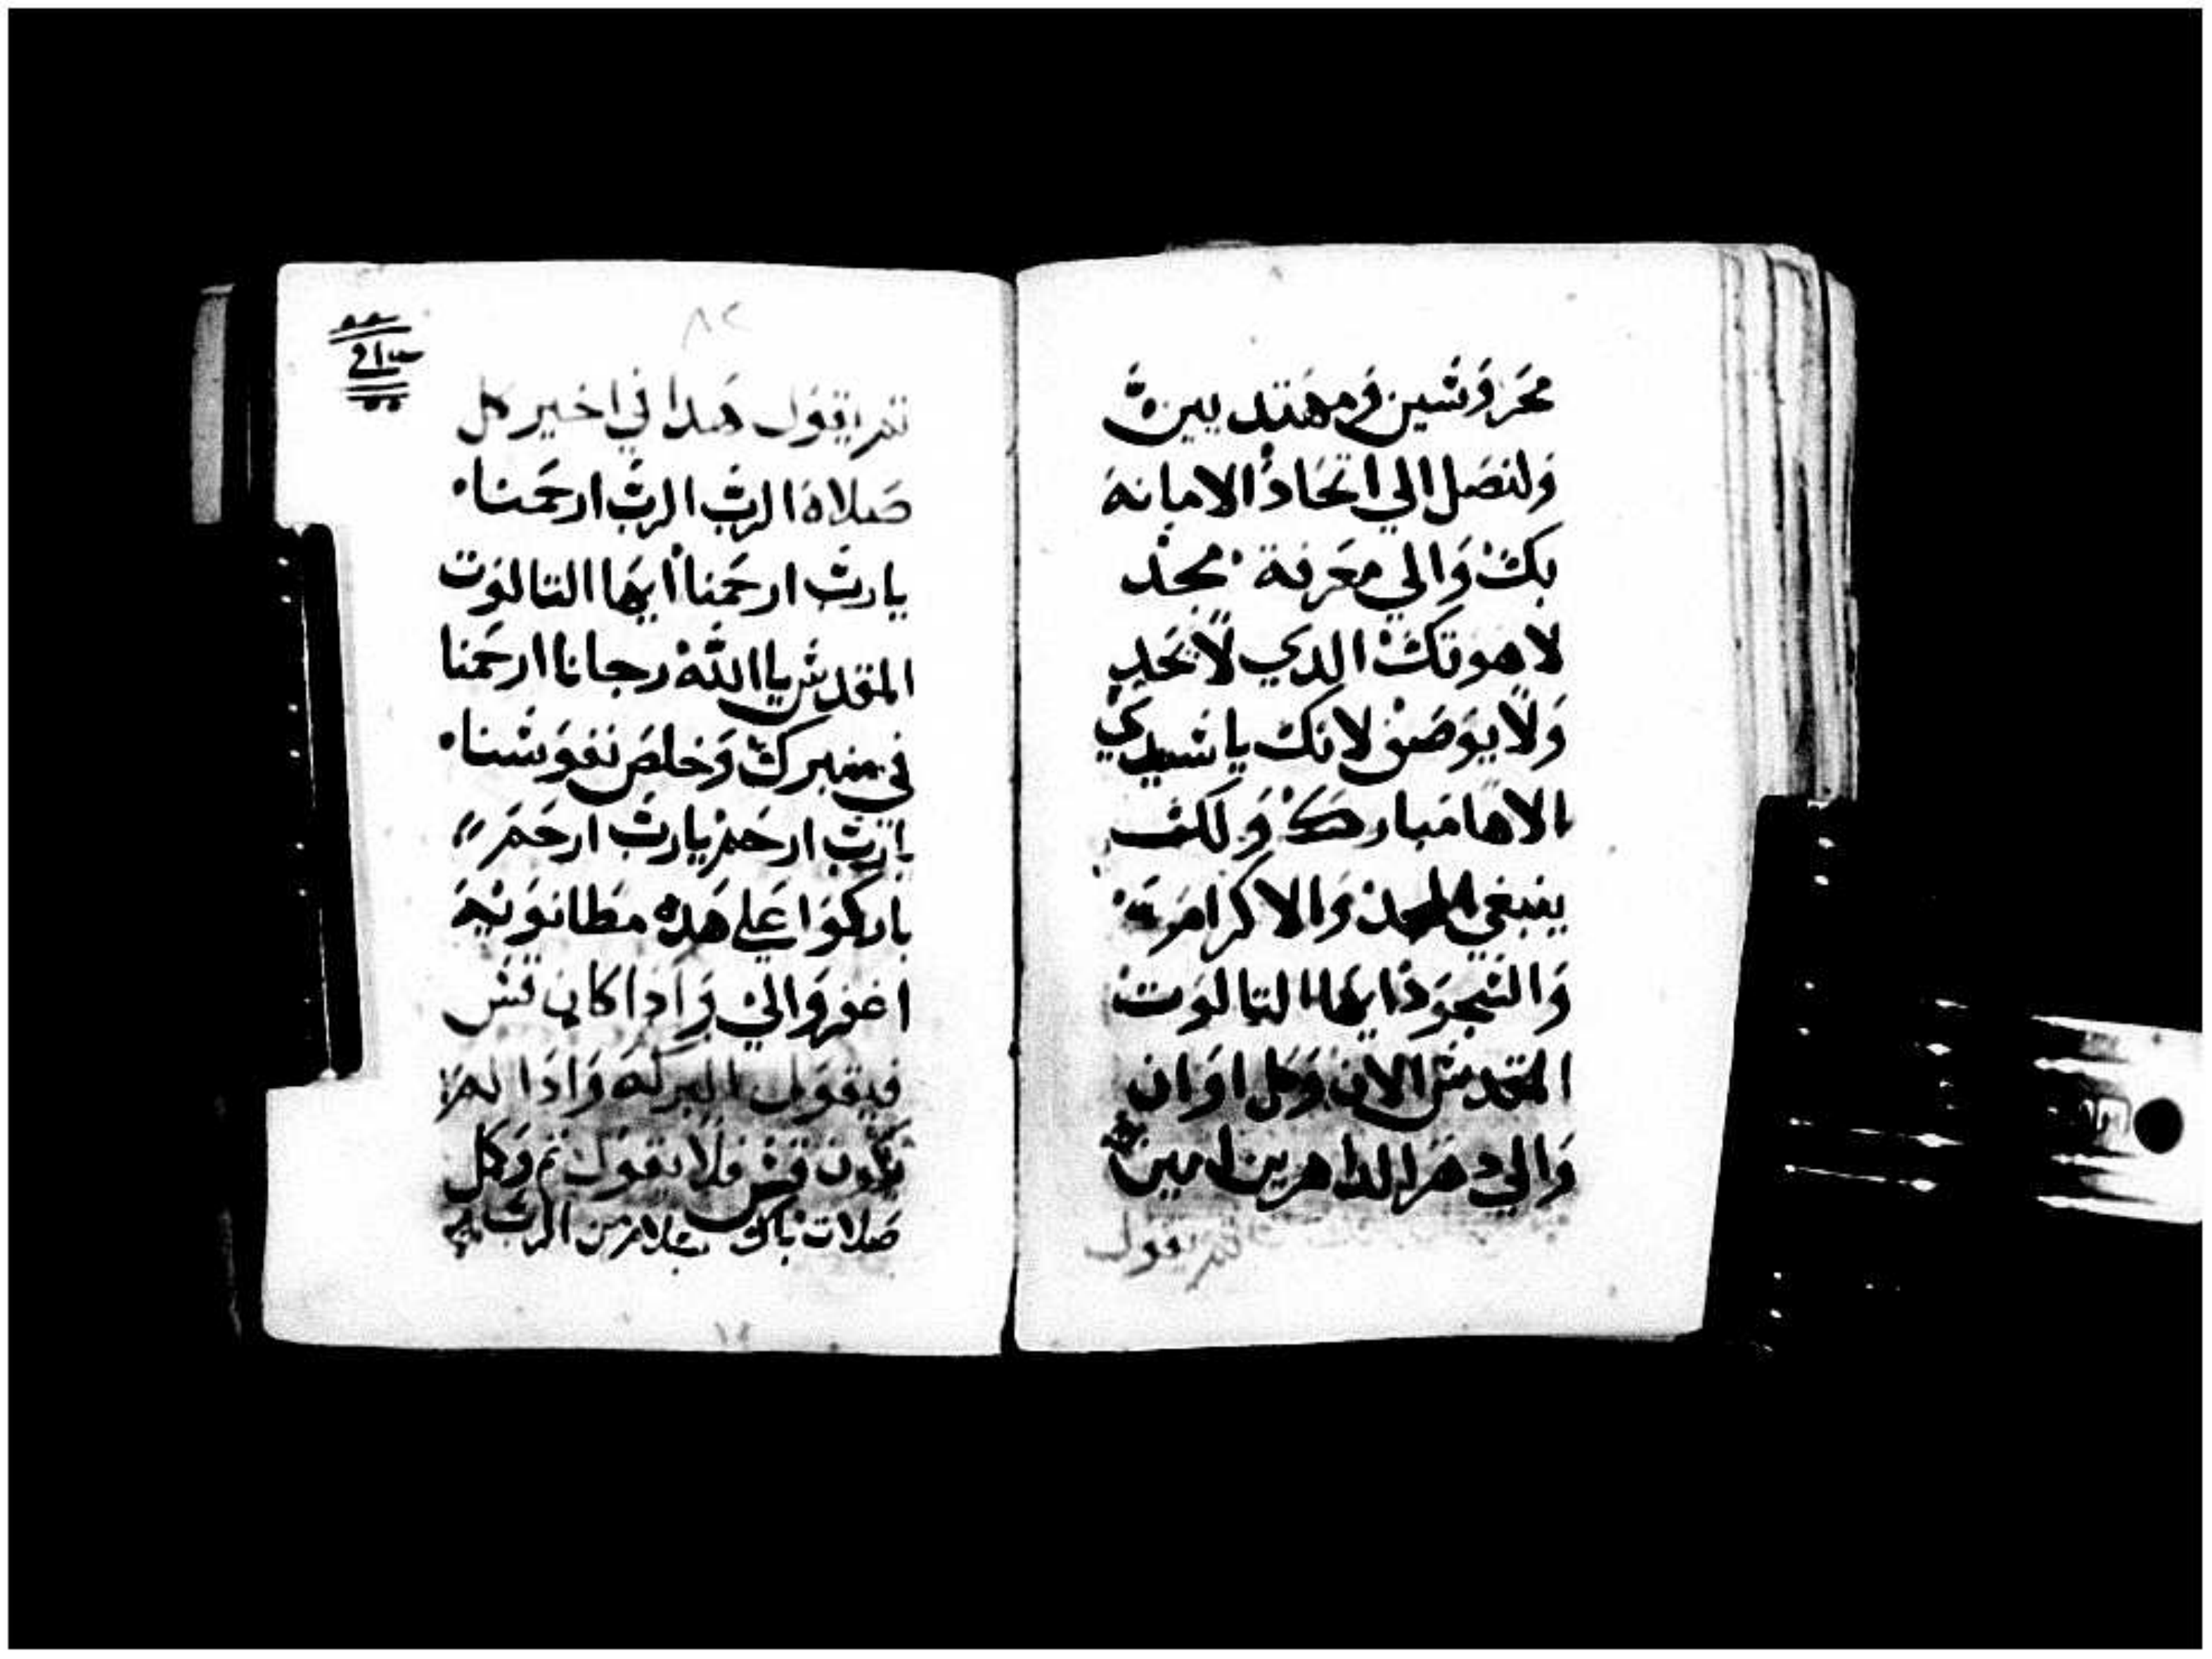 محروسين ومهتديين
ولنصل الي اتحاد الامانه
بك والي معرفة مجد
لاهوتك الدي لا يحد
ولا يوصف لانك ياسيدي
الاها مبارك ولك
ينبغي المجد والاكرامه
والسجود ايها التالوت
المقدس الان وكل اوان
والي دهر الداهرين امين
تم يقول
٨٢
تم يقول هدا في اخير كل
صلاة الرب الرب ارحمنا
يارب ارحمنا ايها التالوت
المقدس يا الله رجانا ارحمنا
في وخلص نفوسنا
يارب ارحم يارب ارحم
باركوا علي هده مطانويه
اغفروا لي وادا كان قس
فيقول البركه وادا لم
يكون قس فلا يقول تم وكل
صلات باكر من الرب